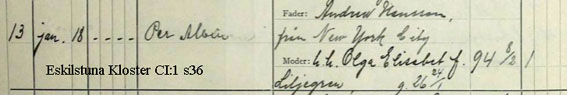 Fader: Andrew Hansson,
13 jan. 18 - - - - Per från New York City
Moder: h.h. Olga Elisabet f. 94 8/2 1
Eskilstuna Kloster CI:1 s36
Liljegren, g. 26 24/1